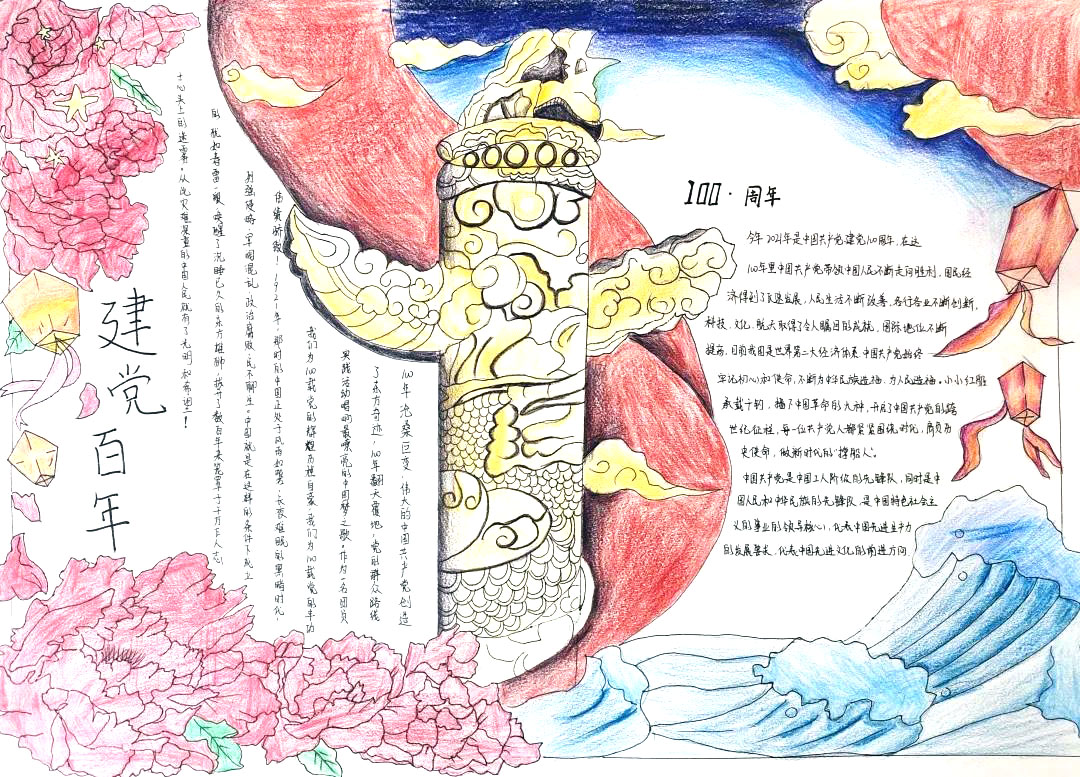 建党百年
100年沧桑巨变,伟大的中国共产党创造
了东方奇迹,100年翻天覆地,党的群众路线
实践活动唱响最嘹亮的中国梦之歌。作为一名团员
我们为100载党的辉煌而担自豪,我们为100载党的丰功
伟绩骄傲!1921年,那时的中国正处于风雨如磐、长夜难眠的黑暗时代,
列强侵略、军阀混乱、政治腐败、民不聊生。中国就是在这样的条件下成立
的 犹如春雷一般唤醒了沉睡已久的东方雄狮,拨开了数百年来笼罩于千万工人志
士心头上的迷雾。从此灾难深重的中国人民就有了光明和希望!
100·周年
今年2021年是中国共产党建党100周年,在这
100年里中国共产党带领中国人民不断走向胜利,国民经
济得到了飞速发展,人民生活不断改善,各行各业不断创新,
科技、文化、航天取得了令人瞩目的成就,国际地位不断
提高,目前我国是世界第二大经济体系 中国共产党始终
牢记初心和使命,不断为中华民族造福,为人民造福。小小红船
承载千钧,播下中国革命的火种,开启了中国共产党的跨
世纪征程,每一位共产党人都紧紧围绕时代,肩负历
史使命,做新时代的“撑船人”。
中国共产党是中国工人阶级的先锋队,同时是中
国人民和中华民族的先锋队,是中国特色社会主
义的事业的领导核心,代表中国先进生产力
的发展要求,代表中国先进文化的前进方向